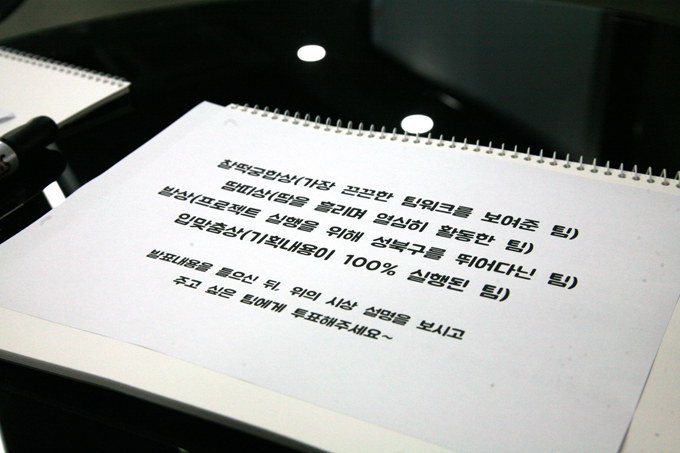 찰떡궁합상(가장 끈끈한 팀워크를 보여준 팀)
땀띠상(땀을 흘리며 열심히 활동한 팀)
발상(프로젝트 실행을 위해 성북구를 뛰어다닌 팀)
입맞춤상(기획내용이 100% 실행된 팀)
발표내용을 들으신 뒤, 위의 시상 설명을 보시고
주고 싶은 팀에게 투표해주세요~